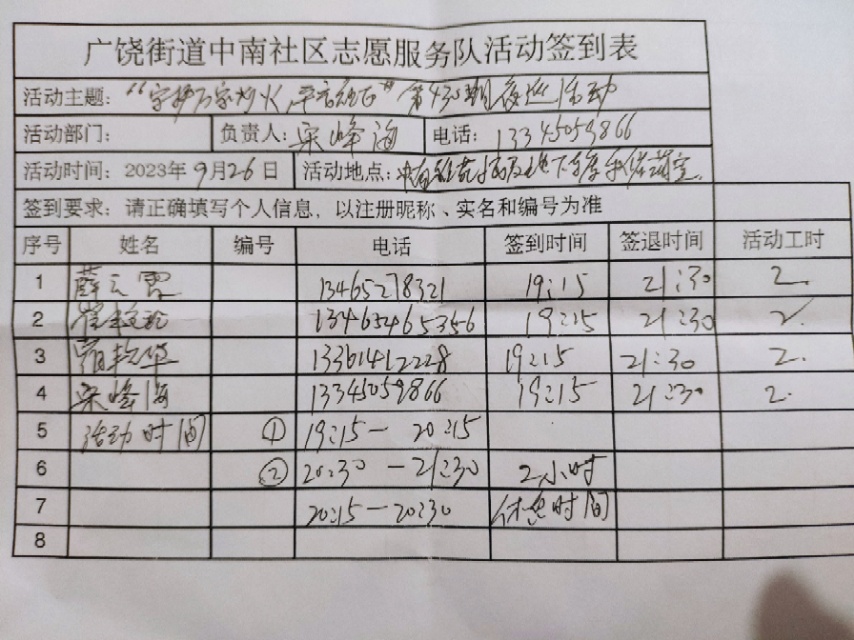 广饶街道中南社区志愿服务队活动签到表
活动主题："守护万家灯火 平安 " 第430期夜巡活动
活动部门： 负责人：宋峰海 电话：13345059866
活动时间：2023年9月26日 活动地点：
签到要求：请正确填写个人信息，以注册昵称、实名和编号为准
序号 姓名 编号 电话 签到时间 签退时间 活动工时
1 薛云霞 13465278321 19:15 21:30 2.
2 13465465356 19:15 21:30 2.
3 13361412228 19:15 21:30 2.
4 宋峰海 13345059866 19:15 21:30 2.
5 活动时间 ① 19:15— 20:15
6 ② 20:30 —21:30 2小时
7 20:15—20:30 休息时间
8